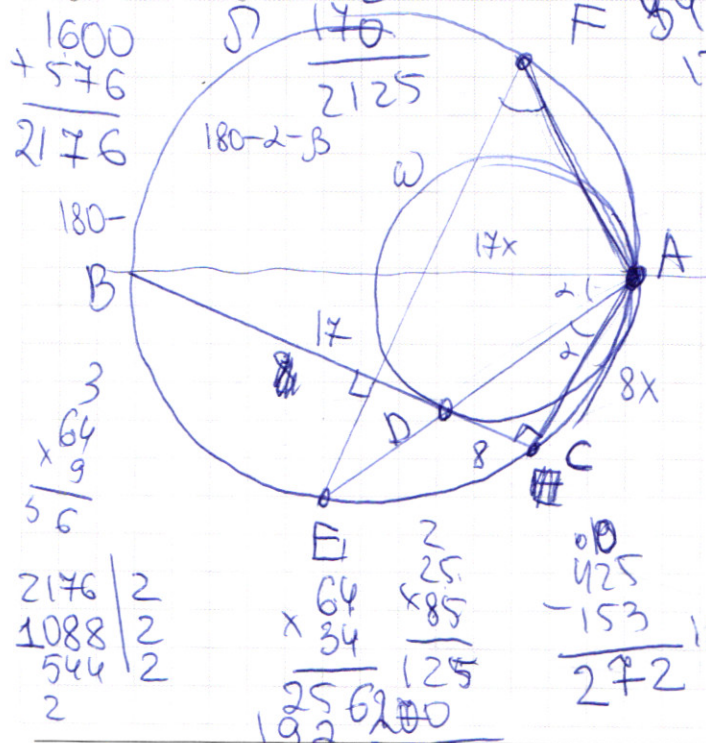 1600
+ 576
2176
170
2125
Ω
F
180-α-β
ω
180-
17x
A
B
α
17
α
8x
D
8
C
E
3
64
× 9
56
2176 | 2
1088 | 2
544 | 2
2
64
× 34
256
192
2
25
×85
125
200
425
-153
272